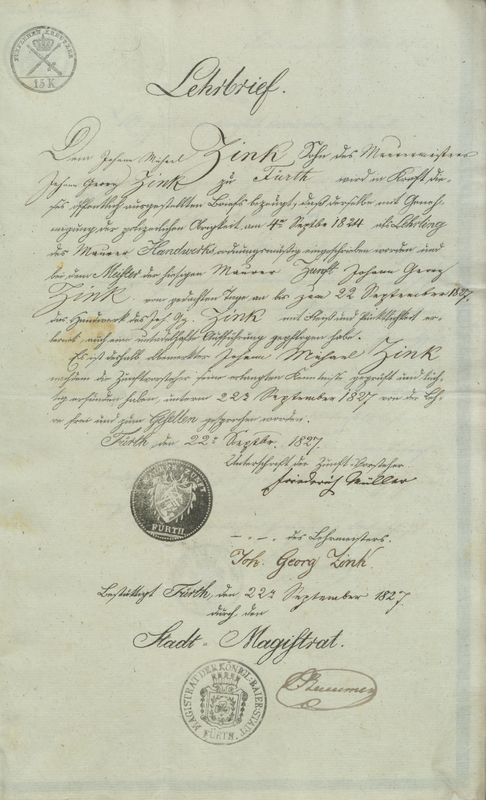 FÜNFZEHEN KREUTZER
15 K
Lehrbrief.
Dem Johann Michael Zink Sohn des Maurermeisters
Johann Georg Zink zu Fürth wird in Kraft die-
ses öffentlich ausgestellten Briefs bezeugt, daß derselbe mit Geneh-
migung der polizeilichen Obrigkeit am 4ten Septbr 1824 als Lehrling
des Maurer Handwerks ordnungsmäßig eingeschrieben worden und
bei dem Meister der hiesigen Maurer Zunft Johann Georg
Zink von gedachtem Tage an bis zum 22 September 1827
das Handwerk des Joh. Gg. Zink mit Fleiß und Pünktlichkeit er-
lernt, auch eine untadelhafte Aufführung gepflogen habe.
Es ist deshalb obenerwähnter Johann Michael Zink
nachdem die Zunftvorsteher seine erlangten Kenntniße geprüft und tüch-
tig erfunden haben, unterm 22ten September 1827 von der Leh-
re frei und zum Gesellen gesprochen worden.
Fürth, den 22ten Septbr. 1827.
Unterschrift der Zunft-Vorsteher.
Friederich Müller
FÜRTH
des Lehrmeisters.
Joh. Georg Zink
Bestättigt Fürth, den 22ten September 1827.
durch den
Stadt-Magistrat.
MAGISTRAT DER KÖNIGL. BAIER. STADT
FÜRTH.